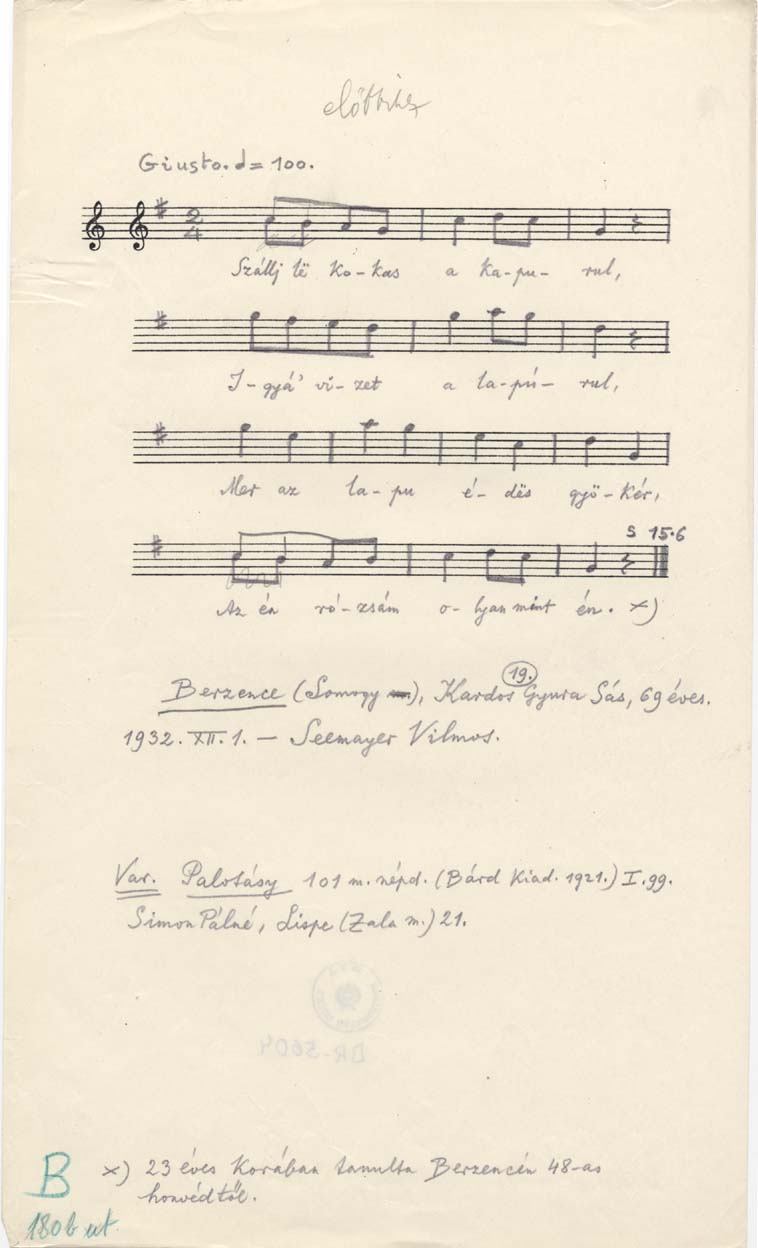 előbbihez
Giusto. d= 100.
2
4
Szállj lë ko-kas a ka-pu- rul,
I-gyá' vi-zet a la-pú- rul,
Mer az la-pu é-dës gyö-kér,
S 15·6
Az én ró-zsám o-lyan mint én. x)
19.
Berzence (Somogy), Kardos Gyura Sás, 69 éves.
1932. XII. 1. — Seemayer Vilmos.
Var. Palotásy 101 m. népd. (Bárd Kiad. 1921.) I. 99.
Simon Pálné, Lispe (Zala m.) 21.
BR-5604
B
x) 23 éves korában tanulta Berzencén 48-as
honvédtől.
180b ut.